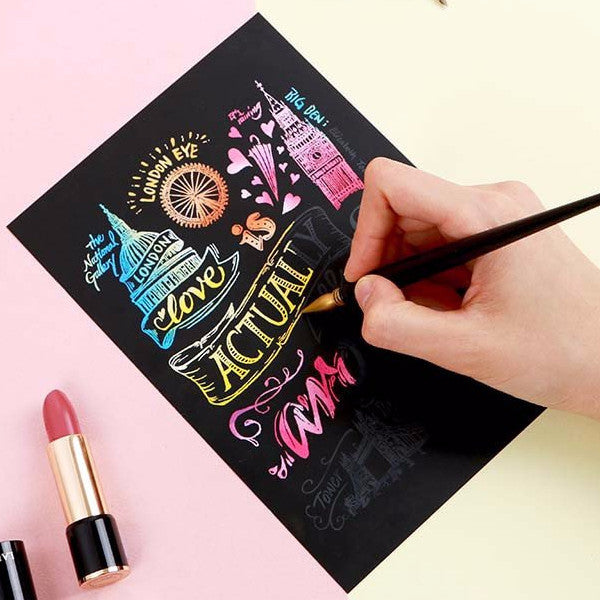 it's raining
BIG BEN:
Elizabeth
LONDON EYE
the
National
Gallery
LONDON
love
is
ACTUALLY
LA